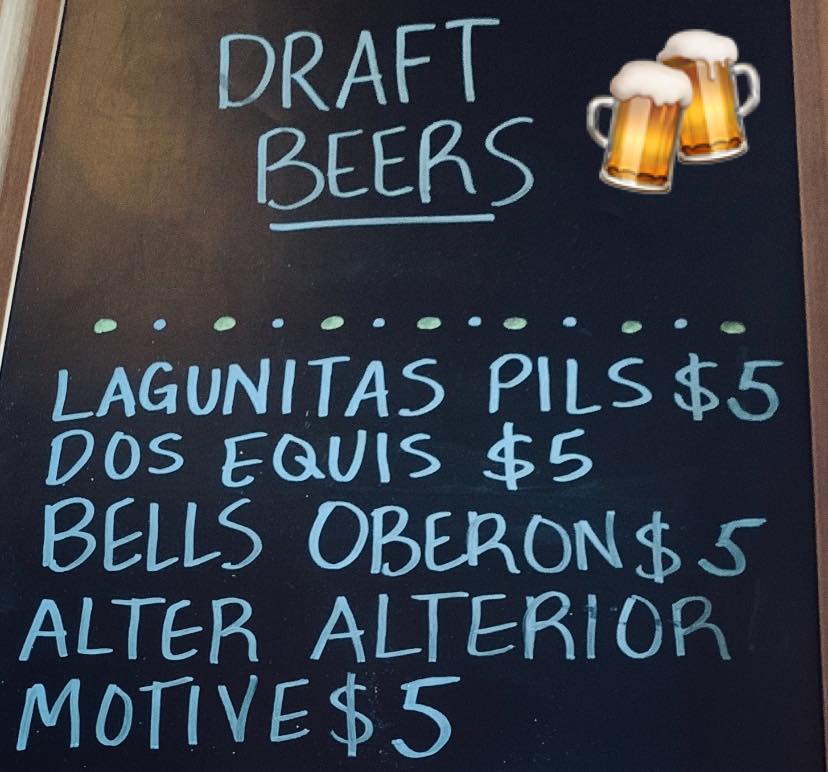 DRAFT
BEERS
LAGUNITAS PILS $5
DOS EQUIS $5
BELLS OBERON $5
ALTER ALTERIOR
MOTIVE $5